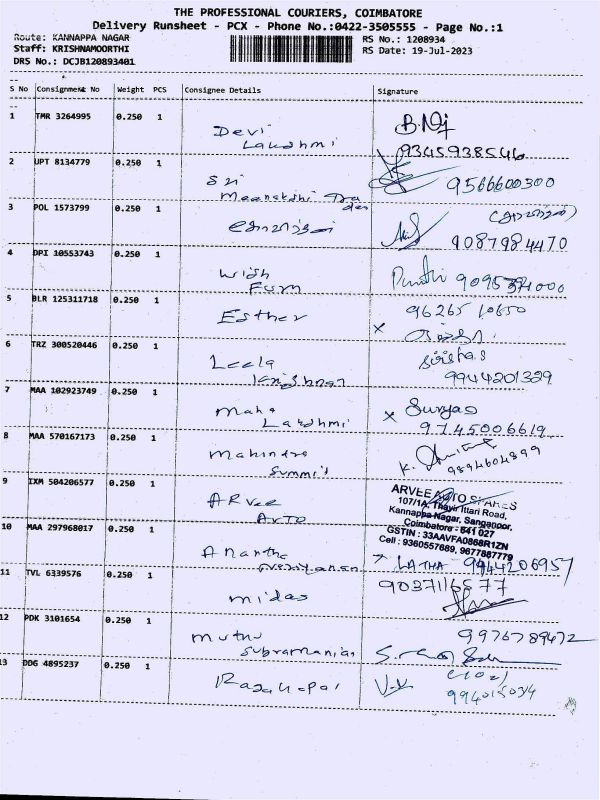 THE PROFESSIONAL COURIERS, COIMBATORE
Delivery Runsheet - PCX - Phone No.:0422-3505555 - Page No.:1
Route: KANNAPPA NAGAR RS No.: 1208934
Staff: KRISHNAMOORTHI RS Date: 19-Jul-2023
DRS No.: DCJB120893401
S No Consignment No Weight PCS Consignee Details Signature
1 TMR 3264995 0.250 1
Devi
Lakshmi 9345938546
2 UPT 8134779 0.250 1
Sri 9566600300
Meenakshi
3 POL 1573799 0.250 1
9087984470
4 DPI 10553743 0.250 1
Wish
Furn
5 BLR 125311718 0.250 1 96265 10650
Esther
6 TRZ 300520446 0.250 1
Leela
Krishnan 9944201329
7 MAA 102923749 0.250 1
Maha Suryas
Lakshmi 9745006619
8 MAA 570167173 0.250 1
Mahindra
Summit 9894604899
9 IXM 504206577 0.250 1
ARVee ARVEE AUTO SPARES
AUTO 107/1A, Thayir Ittari Road,
Kannappa Nagar, Sanganoor,
Coimbatore - 641 027
GSTIN : 33AAVFA0868R1ZN
Cell : 9360557689, 9677887779
10 MAA 297968017 0.250 1
Anantha LATHA 9944206957
11 TVL 6339576 0.250 1 9037116577
midas
12 PDK 3101654 0.250 1 9976789472
Muthu
Subramanian
13 DDG 4895237 0.250 1
Rajagopal V.V